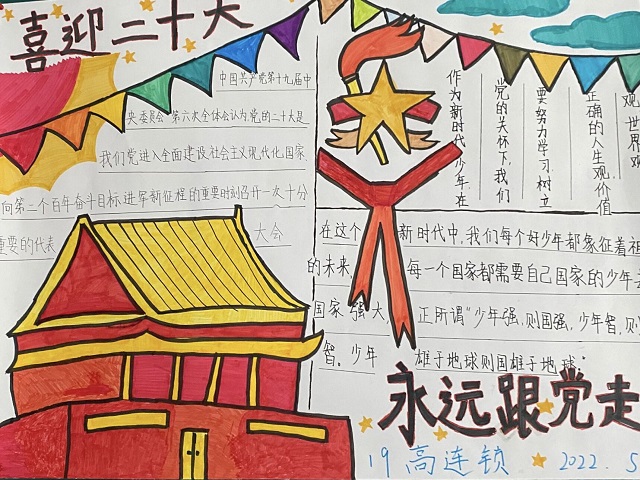 喜迎二十大
中国共产党第十九届中
央委员会第六次全体会认为,党的二十大是
我们党进入全面建设社会主义现代化国家,
向第二个百年奋斗目标进军新征程的重要时刻召开一次十分
重要的代表 大会
作为新时代少年,在
党的关怀下,我们
要努力学习,树立
正确的人生观价值
观,世界观
在这个 新时代中,我们每个好少年都象征着祖
的未来, 每一个国家都需要自己国家的少年
国家强大, 正所谓“少年强,则国强,少年智,则
智。少年 雄于地球则国雄于地球”
永远跟党走
19高连锁 2022.5